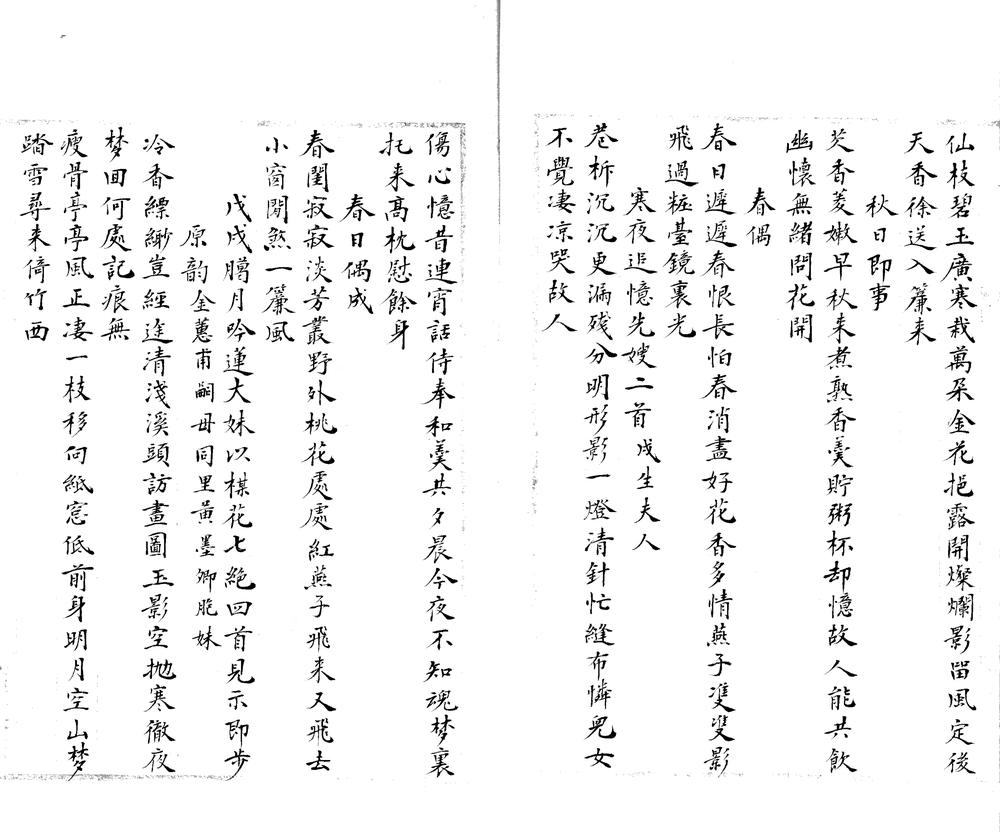 仙枝碧玉廣寒栽萬朶金花挹露開燦爛影畱風定後
天香徐送入簾来
秋日即事
芡香菱嫩早秋来煮熟香羹貯粥杯却憶故人能共飲
幽懷無緒問花開
春偶
春日遲遲春恨長怕春消盡好花香多情燕子雙雙影
飛過粧臺鏡裏光
寒夜追憶先嫂二首戍生夫人
巷柝沉沉更漏残分明形影一燈清針忙縫布憐兒女
不覺凄凉哭故人
傷心憶昔連宵話侍奉和羹共夕晨今夜不知魂梦裏
托来髙枕慰餘身
春日偶成
春閨寂寂淡芳叢野外桃花處處紅燕子飛来又飛去
小窗閒煞一簾風
戊戌臈月吟蓮大妹以楳花七絶四首見示即步
原韵金蕙甫嗣母同里黄墨卿胞妹
冷香縹緲豈經途清淺溪頭訪畫圖玉影空抛寒徹夜
梦回何處記痕無
瘦骨亭亭風正凄一枝移向紙窓低前身明月空山梦
踏雪尋来倚竹西